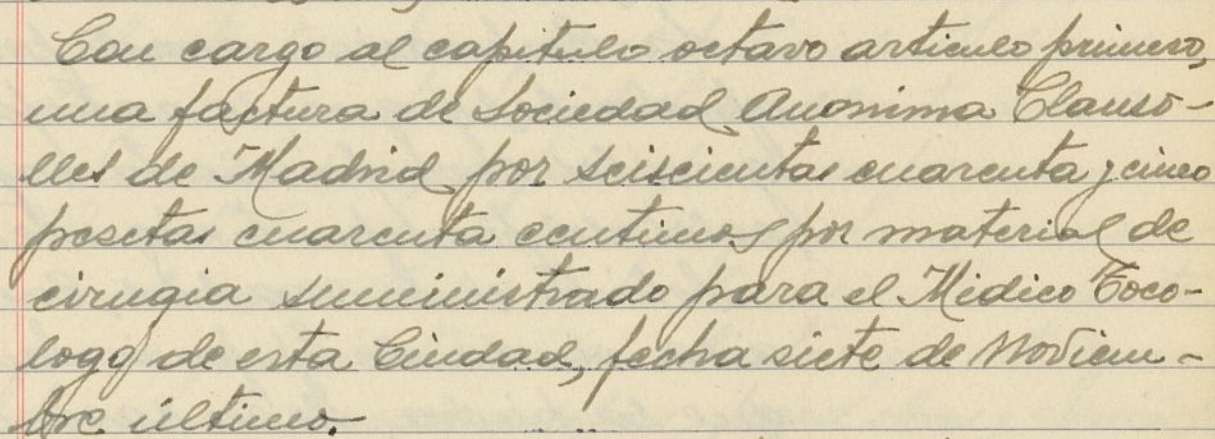 Con cargo al capitulo octavo articulo primero,
una factura de Sociedad Anonima Clauso-
lles de Madrid por seiscientas cuarenta y cinco
pesetas cuarenta centimos por material de
cirugia suministrado para el Médico Toco-
logo de esta Ciudad, fecha siete de Noviem-
bre último.